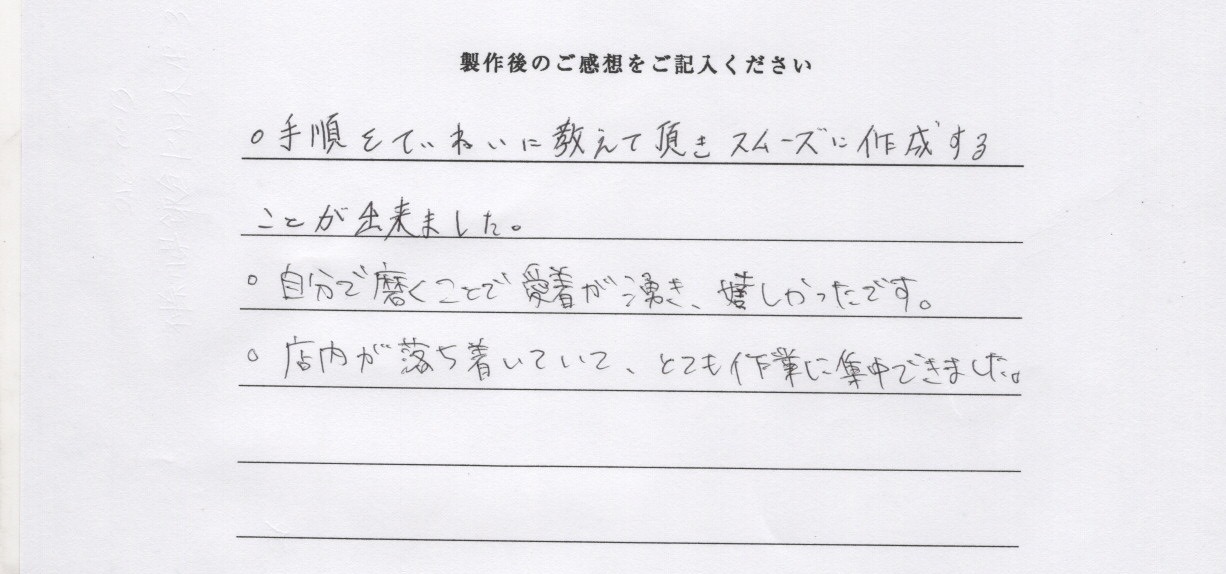 製作後のご感想をご記入ください
○手順をていねいに教えて頂きスムーズに作成する
ことが出来ました。
○自分で磨くことで愛着が湧き、嬉しかったです。
○店内が落ち着いていて、とても作業に集中できました。